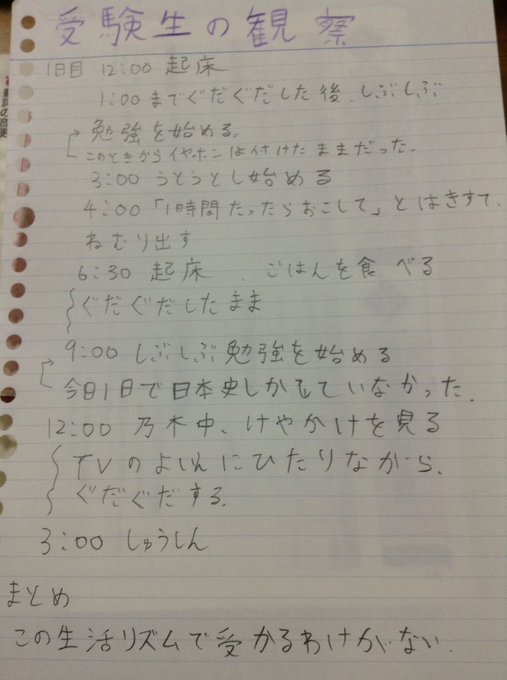 受験生の観察
1日目 12:00 起床
1:00までぐだぐだした後、しぶしぶ
勉強を始める。
このときからイヤホンは付けたままだった。
3:00 うとうとし始める
4:00「1時間たったらおこして」とはきすて、
ねむり出す
6:30 起床、ごはんを食べる
ぐだぐだしたまま
9:00 しぶしぶ勉強を始める
今日1日で日本史しかしていなかった。
12:00 乃木中、けやかけを見る
TVのよいんにひたりながら、
ぐだぐだする。
3:00 しゅうしん
まとめ
この生活リズムで受かるわけがない。